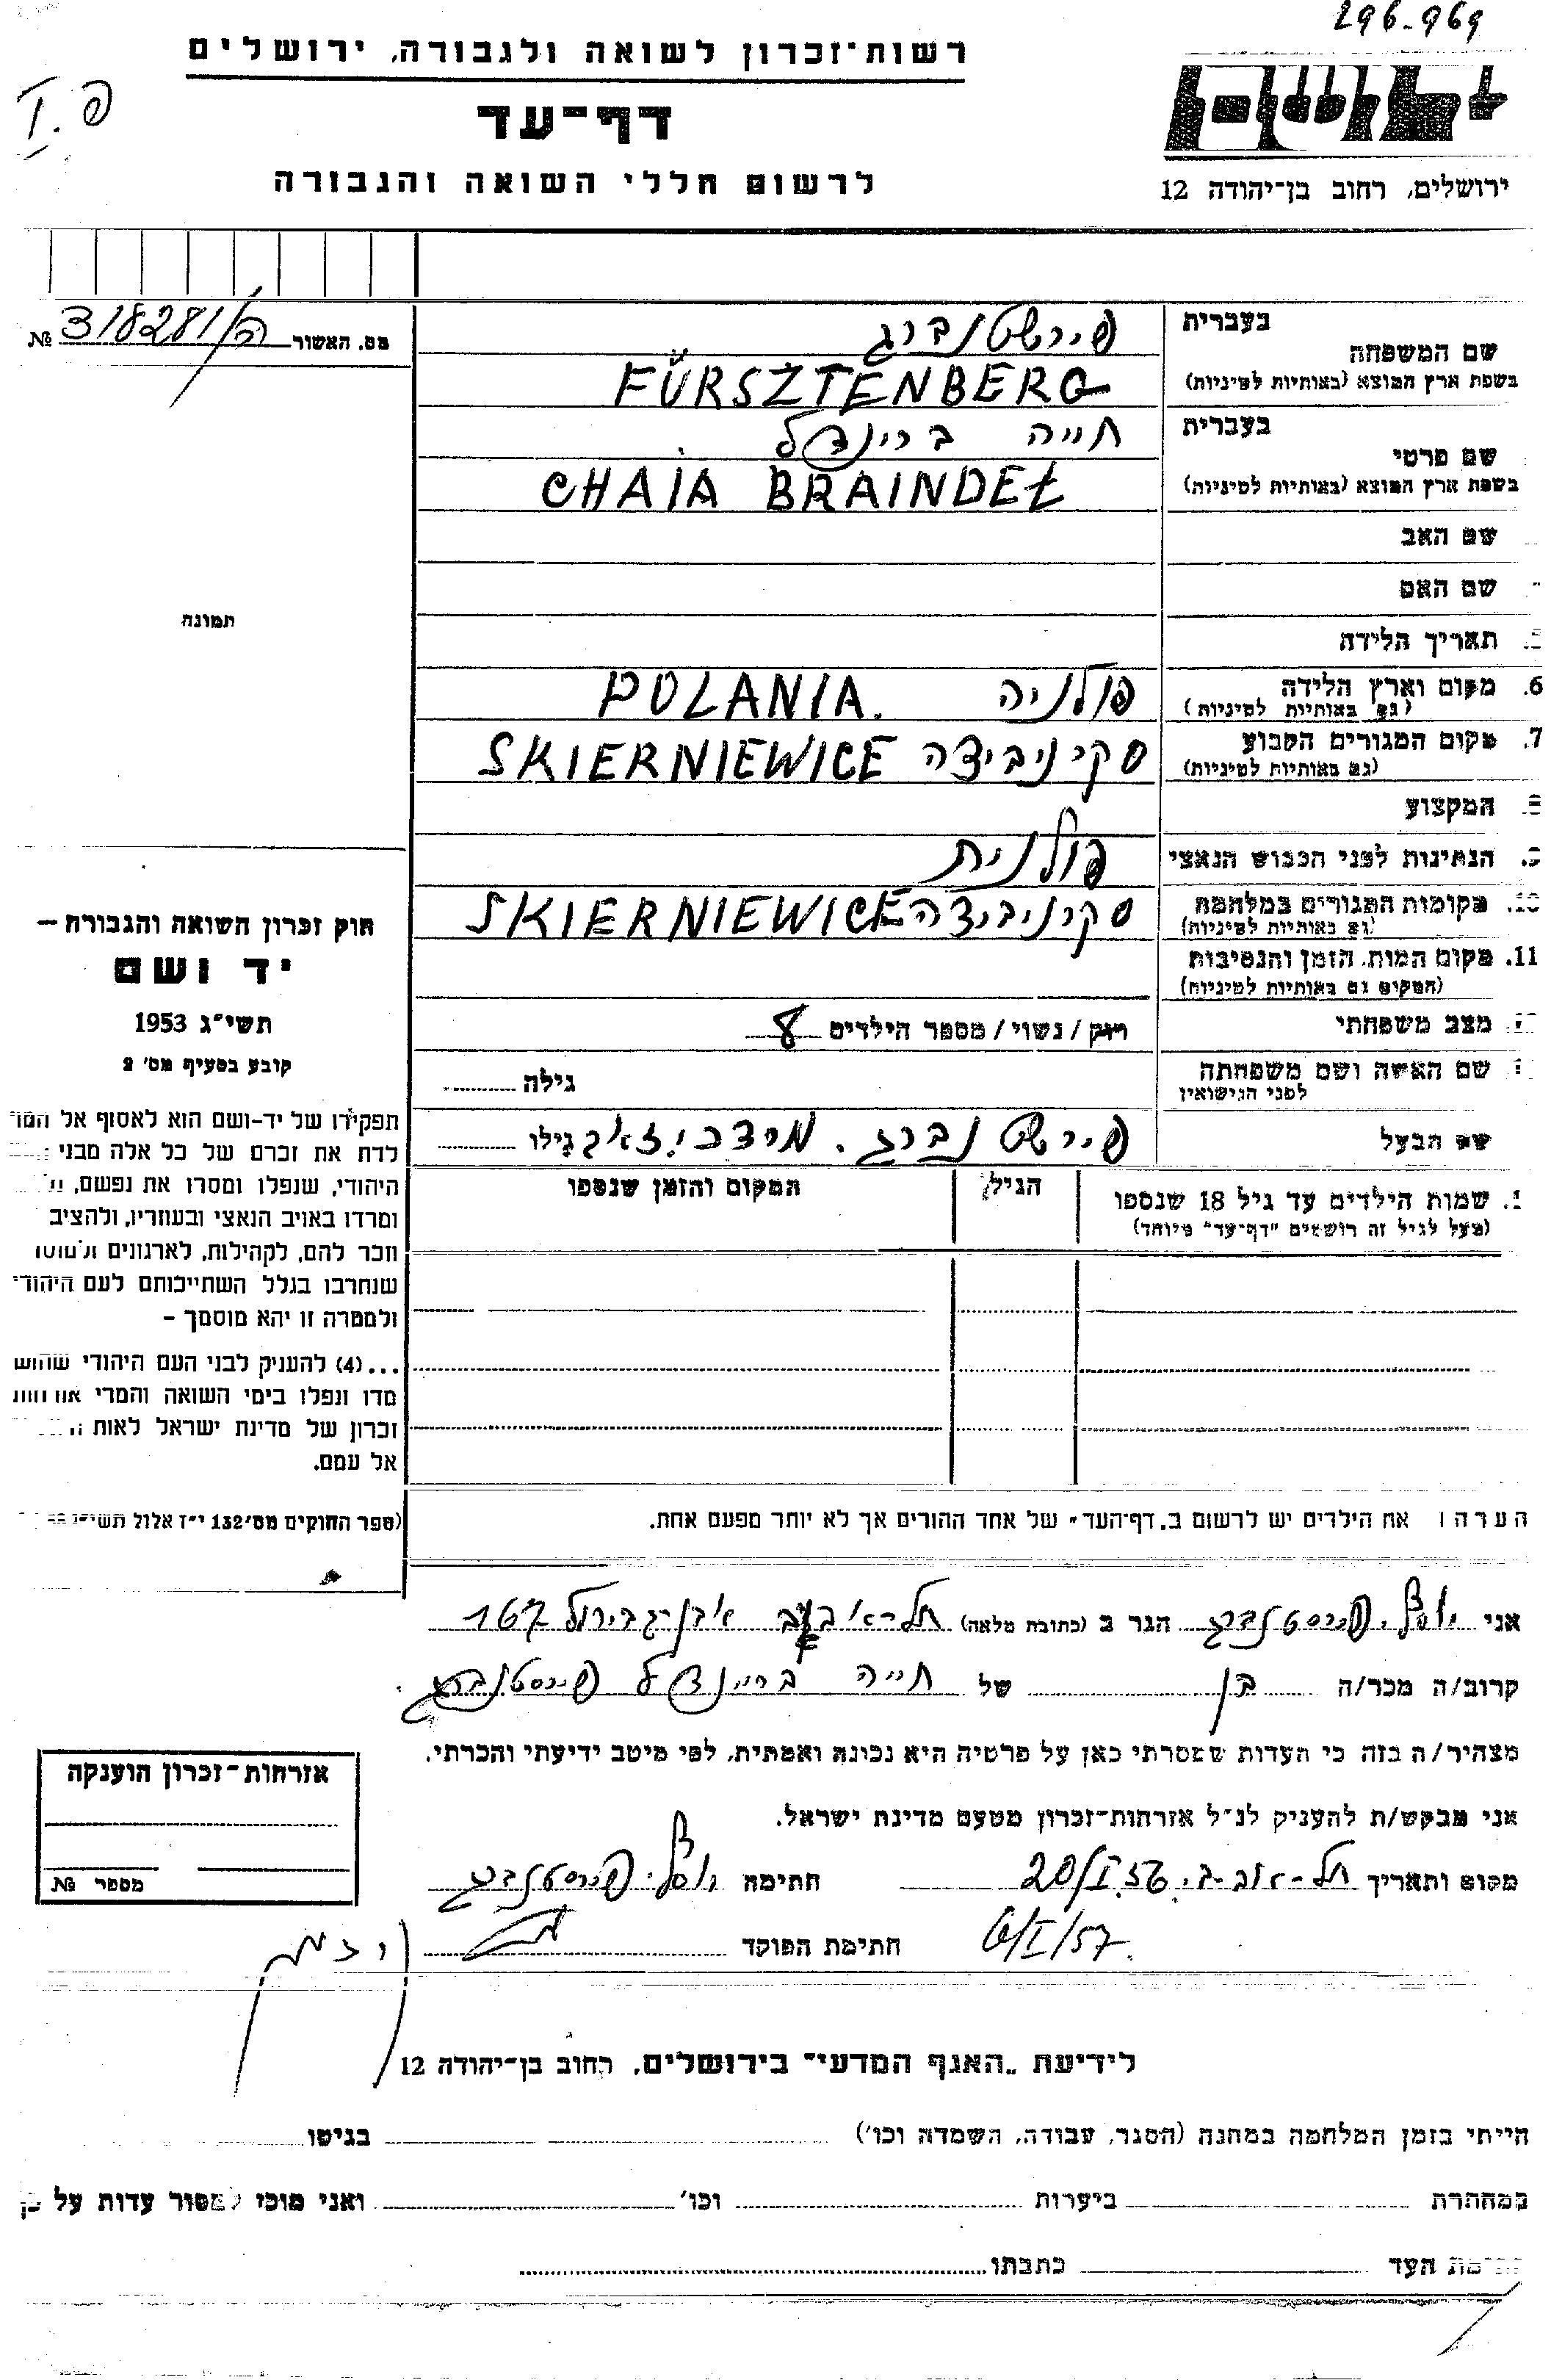 296-969
רשות־זכרון לשואה ולגבורה, ירושלים
דף־עד
לרשום חללי השואה והגבורה
יד ושם
ירושלים, רחוב בן־יהודה 12
בעברית
שם המשפחה
בשפת ארץ המוצא (באותיות לטיניות)
פירשטנברג
FÜRSZTENBERG
מס. האשור 318281/ №
בעברית
שם פרטי
בשפת ארץ המוצא (באותיות לטיניות)
חייה ברינדל
CHAIA BRAINDEŁ
שם האב
שם האם
תאריך הלידה
תמונה
6. מקום וארץ הלידה
(גם באותיות לטיניות)
פולניה POLANIA.
7. מקום המגורים הקבוע
(גם באותיות לטיניות)
סקיניביצה SKIERNIEWICE
המקצוע
הנתינות לפני הכבוש הנאצי
פולנית
10. מקומות המגורים במלחמה
(גם באותיות לטיניות)
סקיניביצה SKIERNIEWICE
11. מקום המות, הזמן והנסיבות
(המקום גם באותיות לטיניות)
מצב משפחתי
רווק / נשוי / מספר הילדים 8
שם האשה ושם משפחתה
לפני הנישואין
גילה
שם הבעל
פירשטנברג. מרדכי זאב גילו
שמות הילדים עד גיל 18 שנספו
(מעל לגיל זה רושמים "דף־עד" מיוחד)
הגיל
המקום והזמן שנספו
חוק זכרון השואה והגבורה –
יד ושם
תשי״ג 1953
קובע בסעיף מס׳ 2
תפקידו של יד-ושם הוא לאסוף אל
לדת את זכרם של כל אלה מבני
היהודי, שנפלו ומסרו את נפשם,
ומרדו באויב הנאצי ובעוזריו, ולהציב
וזכר להם, לקהילות, לארגונים
שנחרבו בגלל השתייכותם לעם היהודי
ולמטרה זו יהא מוסמך –
...(4) להעניק לבני העם היהודי
מדו ונפלו בימי השואה והמרי
זכרון של מדינת ישראל לאות
אל עמם.
(ספר החוקים מס׳ 132 י״ז אלול
הערה: את הילדים יש לרשום ב„דף־העד״ של אחד ההורים אך לא יותר מפעם אחת.
אני יוסף פירסטנברג הגר ב (כתובת מלאה) תל-אביב אבן-גבירול 167
קרוב/ה מכר/ה בן של חייה בריינדל פירסטנברג.
מצהיר/ה בזה כי העדות שמסרתי כאן על פרטיה היא נכונה ואמתית, לפי מיטב ידיעתי והכרתי.
אני מבקש/ת להעניק לנ״ל אזרחות־זכרון מטעם מדינת ישראל.
מקום ותאריך תל-אביב. 20/I.56 חתימה יוסף פירסטנברג
6/I/57. חתימת הפוקד
אזרחות־זכרון הוענקה
מספר №
לידיעת „האגף המדעי״ בירושלים, רחוב בן־יהודה 12
הייתי בזמן המלחמה במחנה (הסגר, עבודה, השמדה וכו׳) בגיטו
במחתרת ביערות וכו׳ ואני מוכן למסור עדות על
העד כתבתו